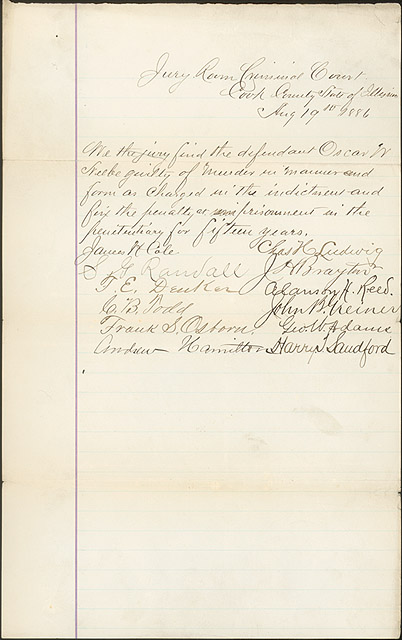 Jury Room Criminal Court
Cook County State of Illinois
Aug 19th 1886
We the jury find the defendant Oscar W
Neebe guilty of murder in manner and
form as charged in the indictment and
fix the penalty at imprisonment in the
penitentiary for fifteen years.
James H Cole Chas H Ludwig
S G Randall J H Brayton
T. E. Denker Alanson H. Reed.
C. B. Todd John B. Greiner
Frank S. Osborn. Geo W. Adams
Andrew Hamilton Harry T Sandford